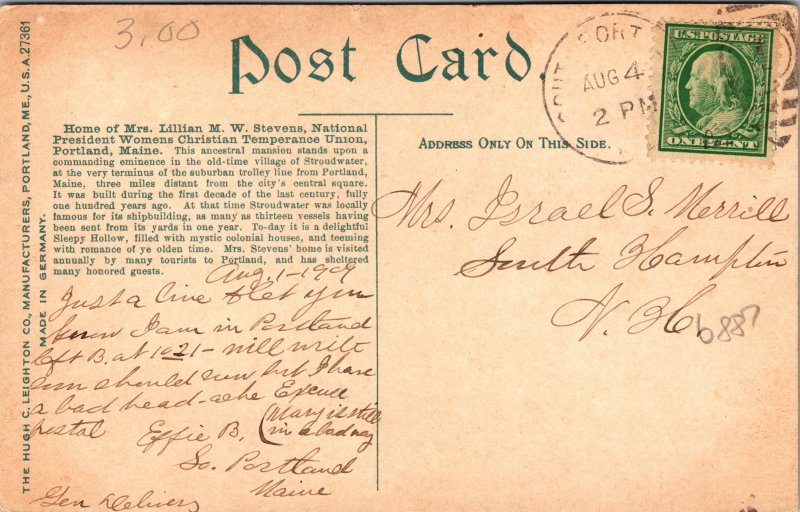 3.00
Post Card.
SOUTH PORT
AUG 4
2 PM
U.S. POSTAGE
ONE CENT
THE HUGH C. LEIGHTON CO., MANUFACTURERS, PORTLAND, ME., U.S.A. 27361
MADE IN GERMANY.
Home of Mrs. Lillian M. W. Stevens, National
President Womens Christian Temperance Union,
Portland, Maine. This ancestral mansion stands upon a
commanding eminence in the old-time village of Stroudwater,
at the very terminus of the suburban trolley line from Portland,
Maine, three miles distant from the city's central square.
It was built during the first decade of the last century, fully
one hundred years ago. At that time Stroudwater was locally
famous for its shipbuilding, as many as thirteen vessels having
been sent from its yards in one year. To-day it is a delightful
Sleepy Hollow, filled with mystic colonial houses, and teeming
with romance of ye olden time. Mrs. Stevens' home is visited
annually by many tourists to Portland, and has sheltered
many honored guests.
Aug. 1-1909
Just a line to let you
know I am in Portland
left B. at 1021- will write
soon but I have
a bad head-ache Excuse
postal Effie B. (Mary is still
in a bad way
So. Portland
Maine
Gen Delivery
ADDRESS ONLY ON THIS SIDE.
Mrs. Israel S. Merrill
South Hampton
N. H.
6887